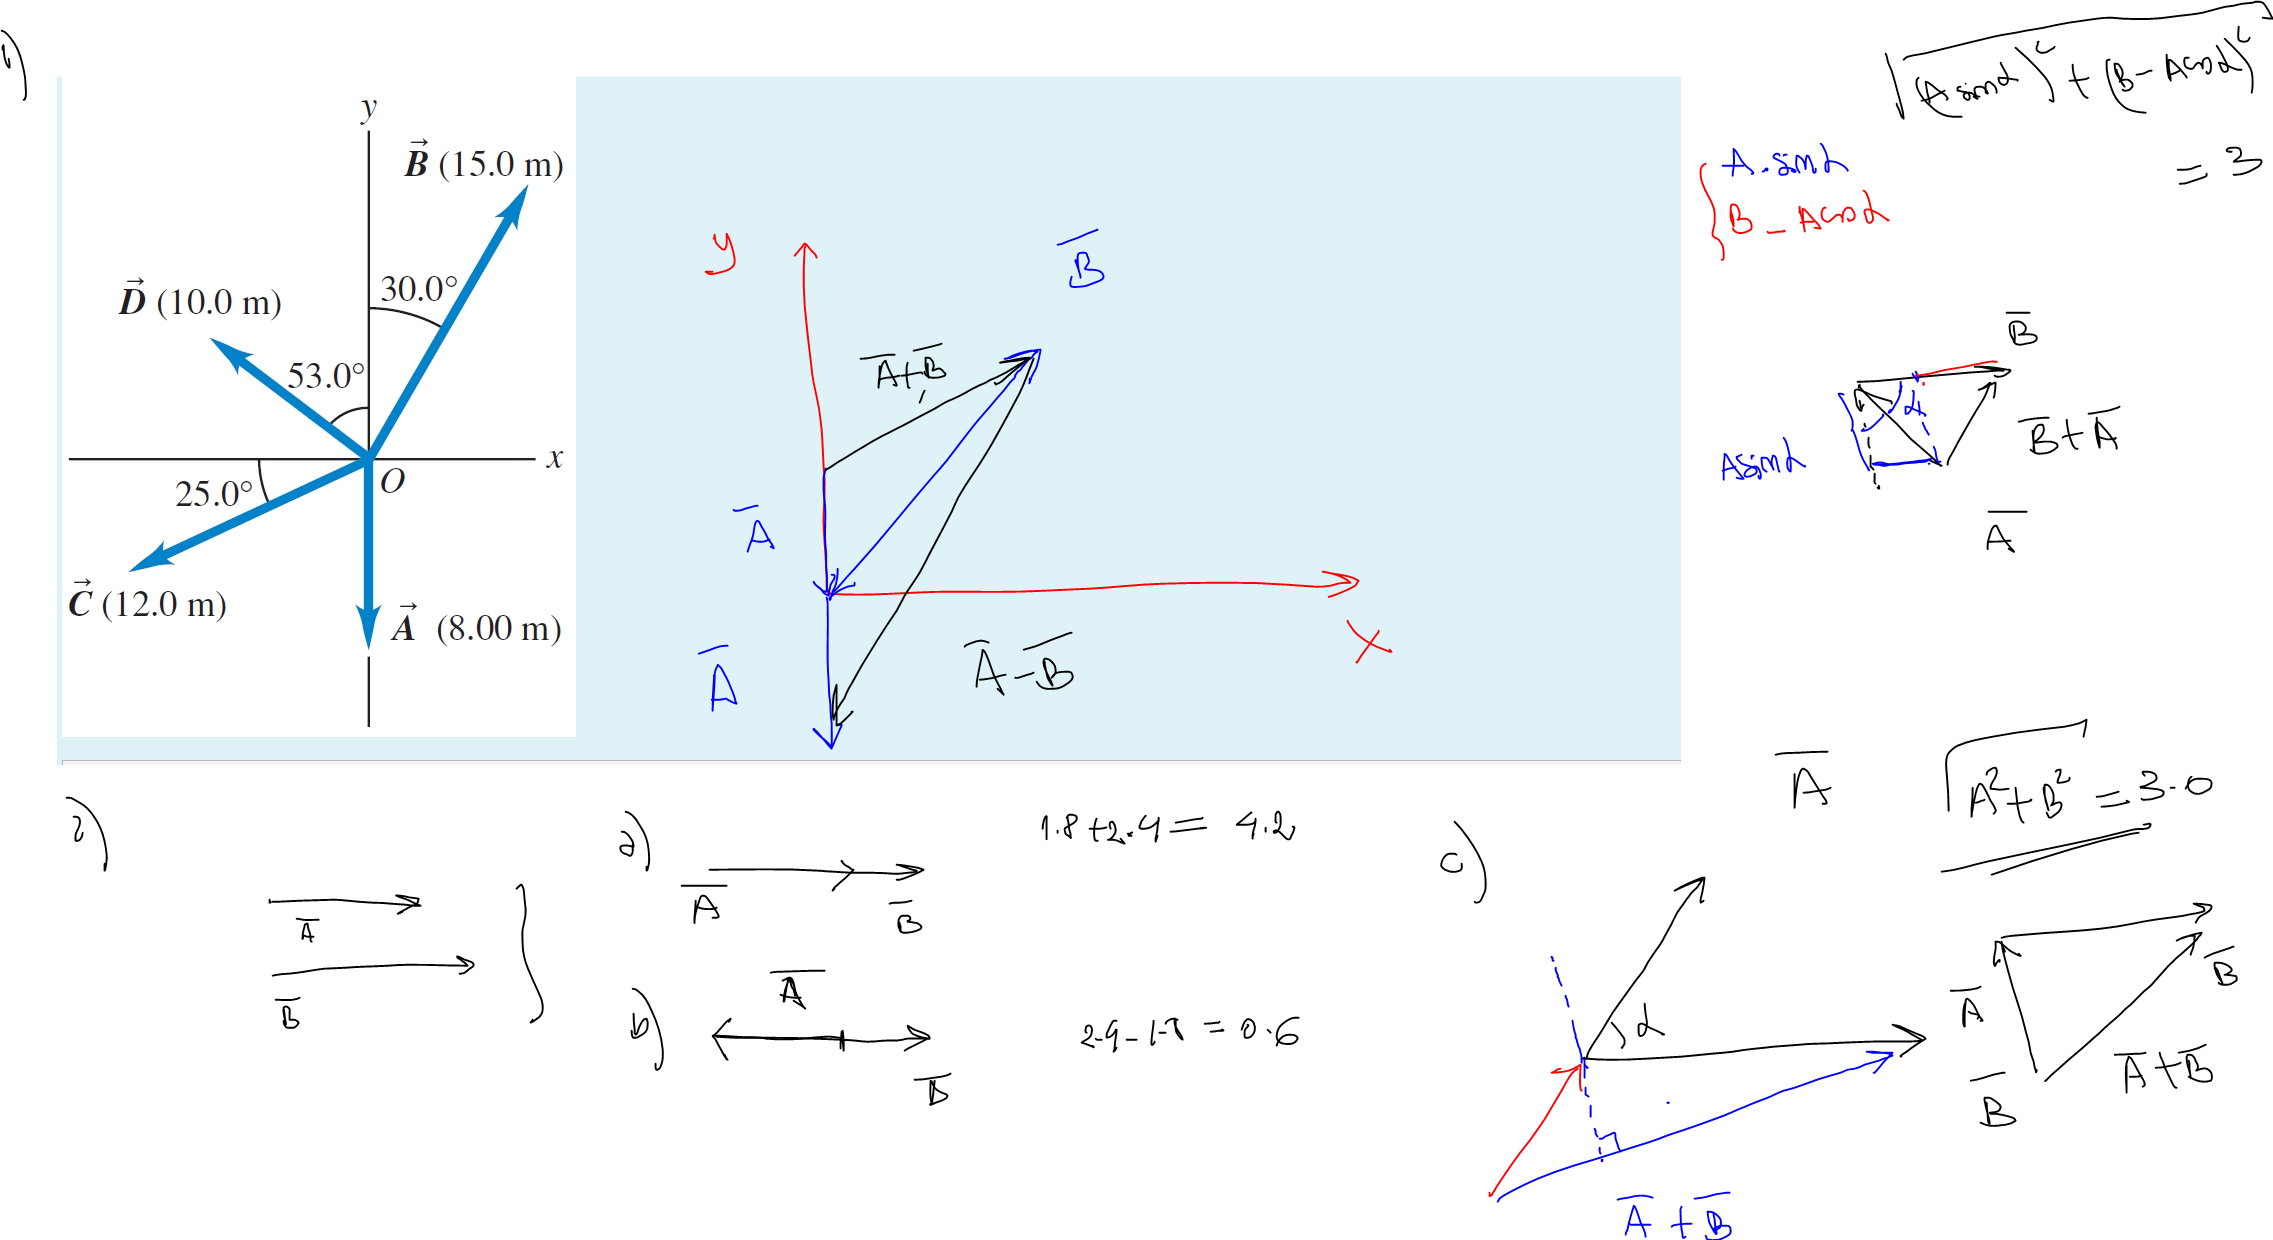 1)
y
B⃗ (15.0 m)
30.0°
D⃗ (10.0 m)
53.0°
x
O
25.0°
C⃗ (12.0 m)
A⃗ (8.00 m)
y
B̅
A̅+B̅
A̅
A̅
A̅-B̅
x
√(A sinα)² + (B-A cosα)²
= 3
A.sinα
B - A cosα
B̅
α
B̅+A̅
A sinα
A̅
2)
A̅
B̅
a)
A̅
B̅
1.8+2.4 = 4.2
b)
A̅
B̅
2.4-1.8 = 0.6
c)
α
A̅ + B̅
A̅
√A²+B² = 3.0
A̅
B̅
A̅+B̅
B̅